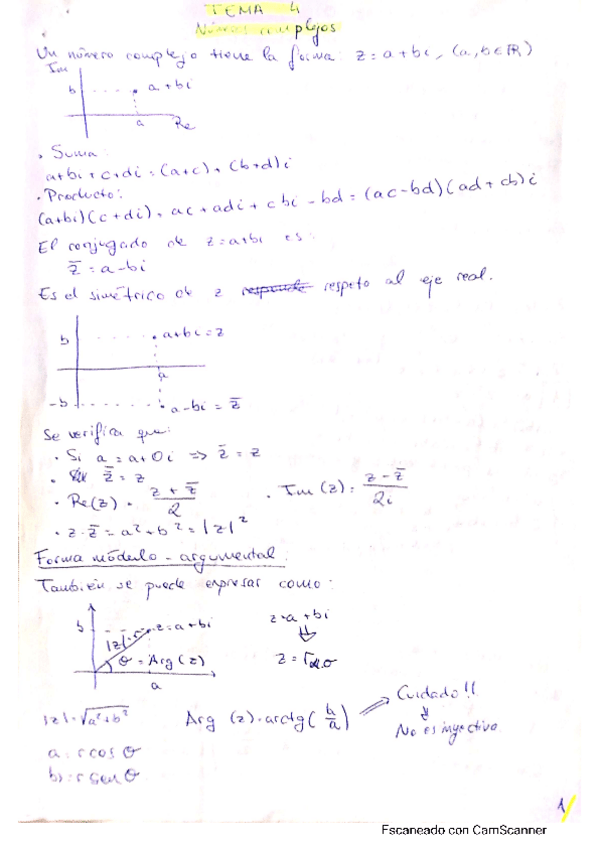 TEMA 4
Números complejos
Un número complejo tiene la forma: z = a + bi, (a, b ∈ ℝ)
Im
b a + bi
a Re
• Suma:
a+bi + c+di = (a+c) + (b+d)i
• Producto:
(a+bi)(c+di) = ac + adi + cbi - bd = (ac-bd)(ad+cb)i
El conjugado de z = a+bi es:
z̄ = a - bi
Es el simétrico de z respeto al eje real.
b a+bi = z
a
-b a-bi = z̄
Se verifica que:
• Si a = a+0i => z̄ = z
• z̿ = z
• Re(z) = (z + z̄)/2 • Im(z) = (z - z̄)/2i
• z·z̄ = a² + b² = |z|²
Forma módulo-argumental:
También se puede expresar como:
b |z| = r z = a+bi z = a + bi
θ = Arg(z)
a
|z| = √(a²+b²) Arg(z) = arctg(b/a) => Cuidado!!
No es inyectiva
a = r cos θ
b = r sen θ
1
Escaneado con CamScanner